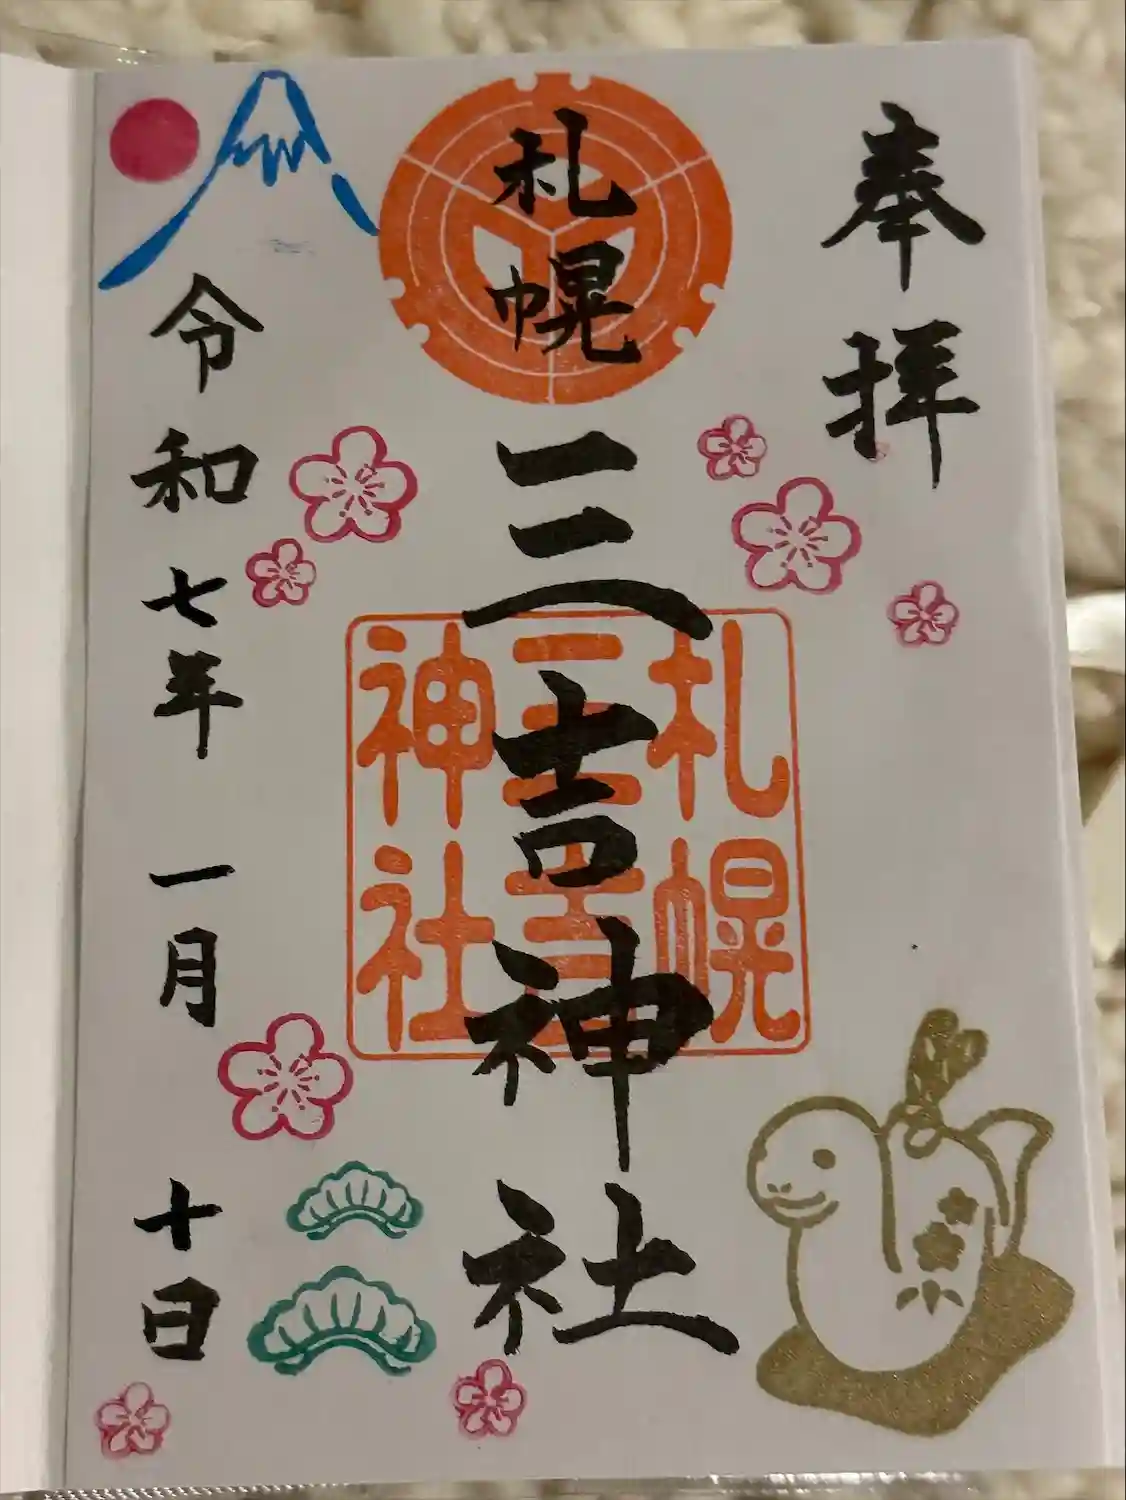 奉拝
札幌
三吉神社
札幌
三吉
神社
令和七年一月十日